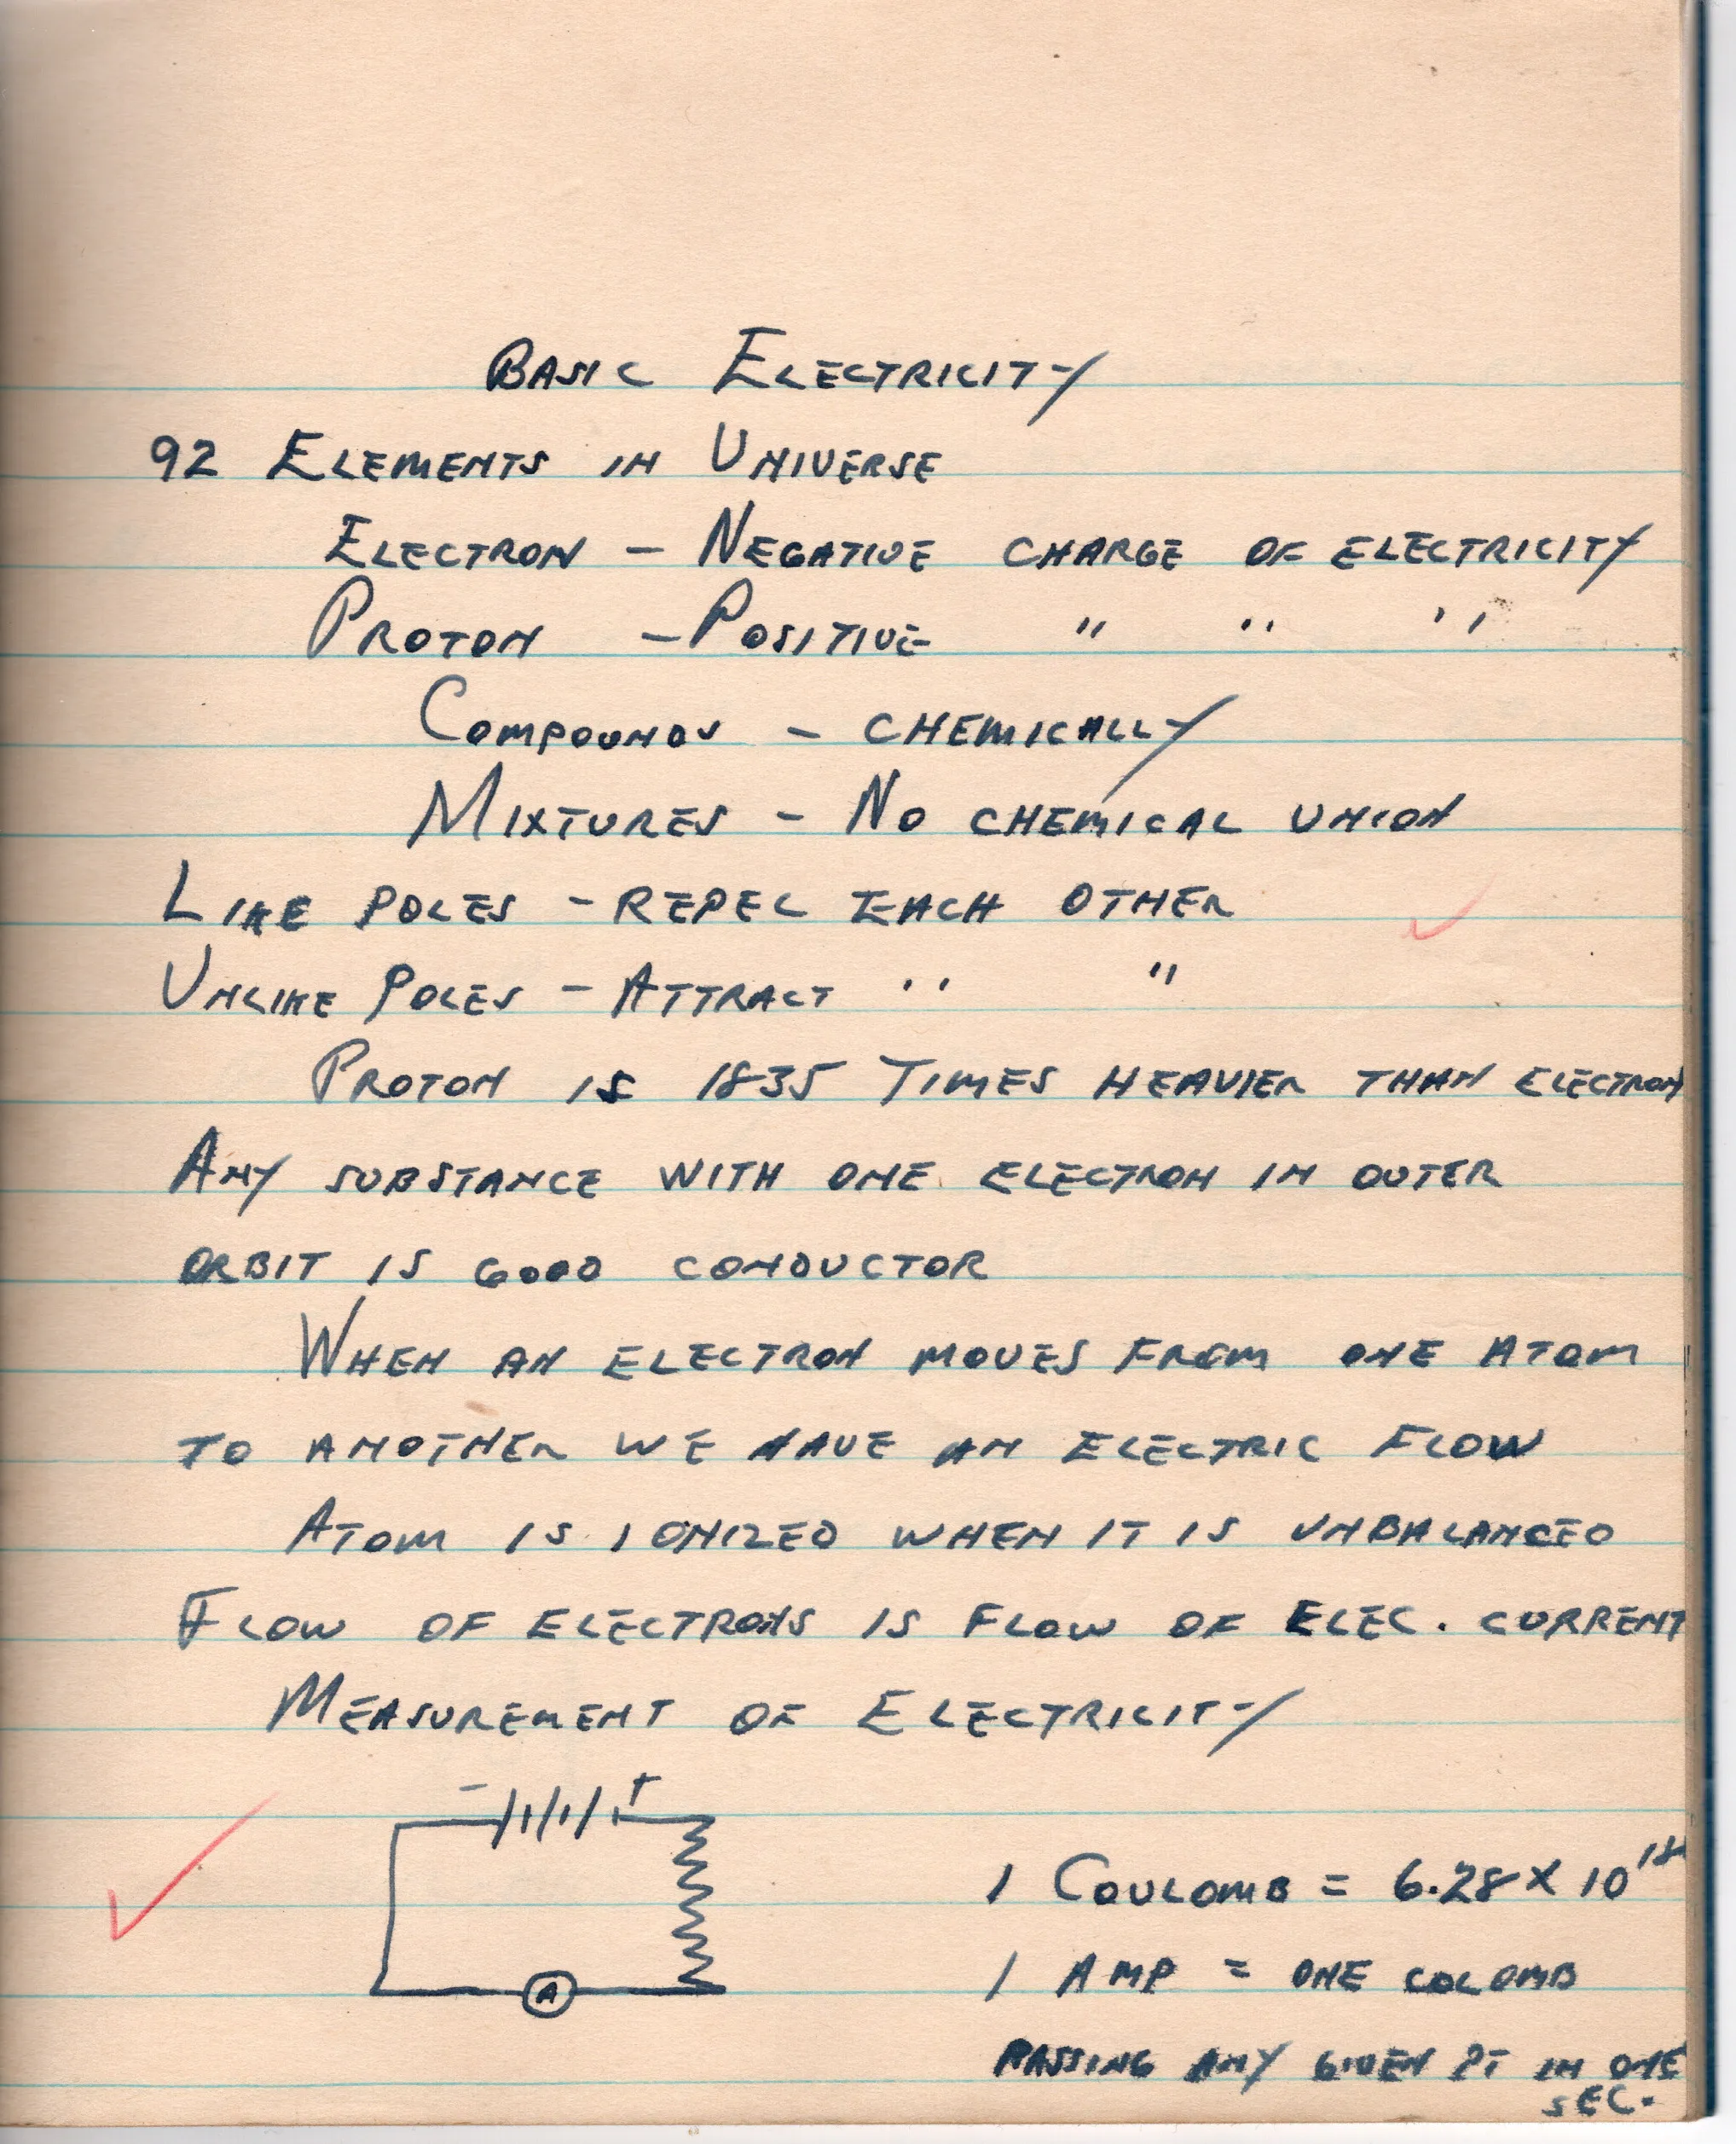 BASIC ELECTRICITY
92 ELEMENTS IN UNIVERSE
ELECTRON - NEGATIVE CHARGE OF ELECTRICITY
PROTON - POSITIVE " " "
COMPOUNDS - CHEMICALLY
MIXTURES - NO CHEMICAL UNION
LIKE POLES - REPEL EACH OTHER
UNLIKE POLES - ATTRACT " "
PROTON IS 1835 TIMES HEAVIER THAN ELECTRON
ANY SUBSTANCE WITH ONE ELECTRON IN OUTER
ORBIT IS GOOD CONDUCTOR
WHEN AN ELECTRON MOVES FROM ONE ATOM
TO ANOTHER WE HAVE AN ELECTRIC FLOW
ATOM IS IONIZED WHEN IT IS UNBALANCED
FLOW OF ELECTRONS IS FLOW OF ELEC. CURRENT
MEASUREMENT OF ELECTRICITY
- +
1 COULOMB = 6.28 X 10¹⁸
A
1 AMP = ONE COLOMB
PASSING ANY GIVEN PT IN ONE
SEC.